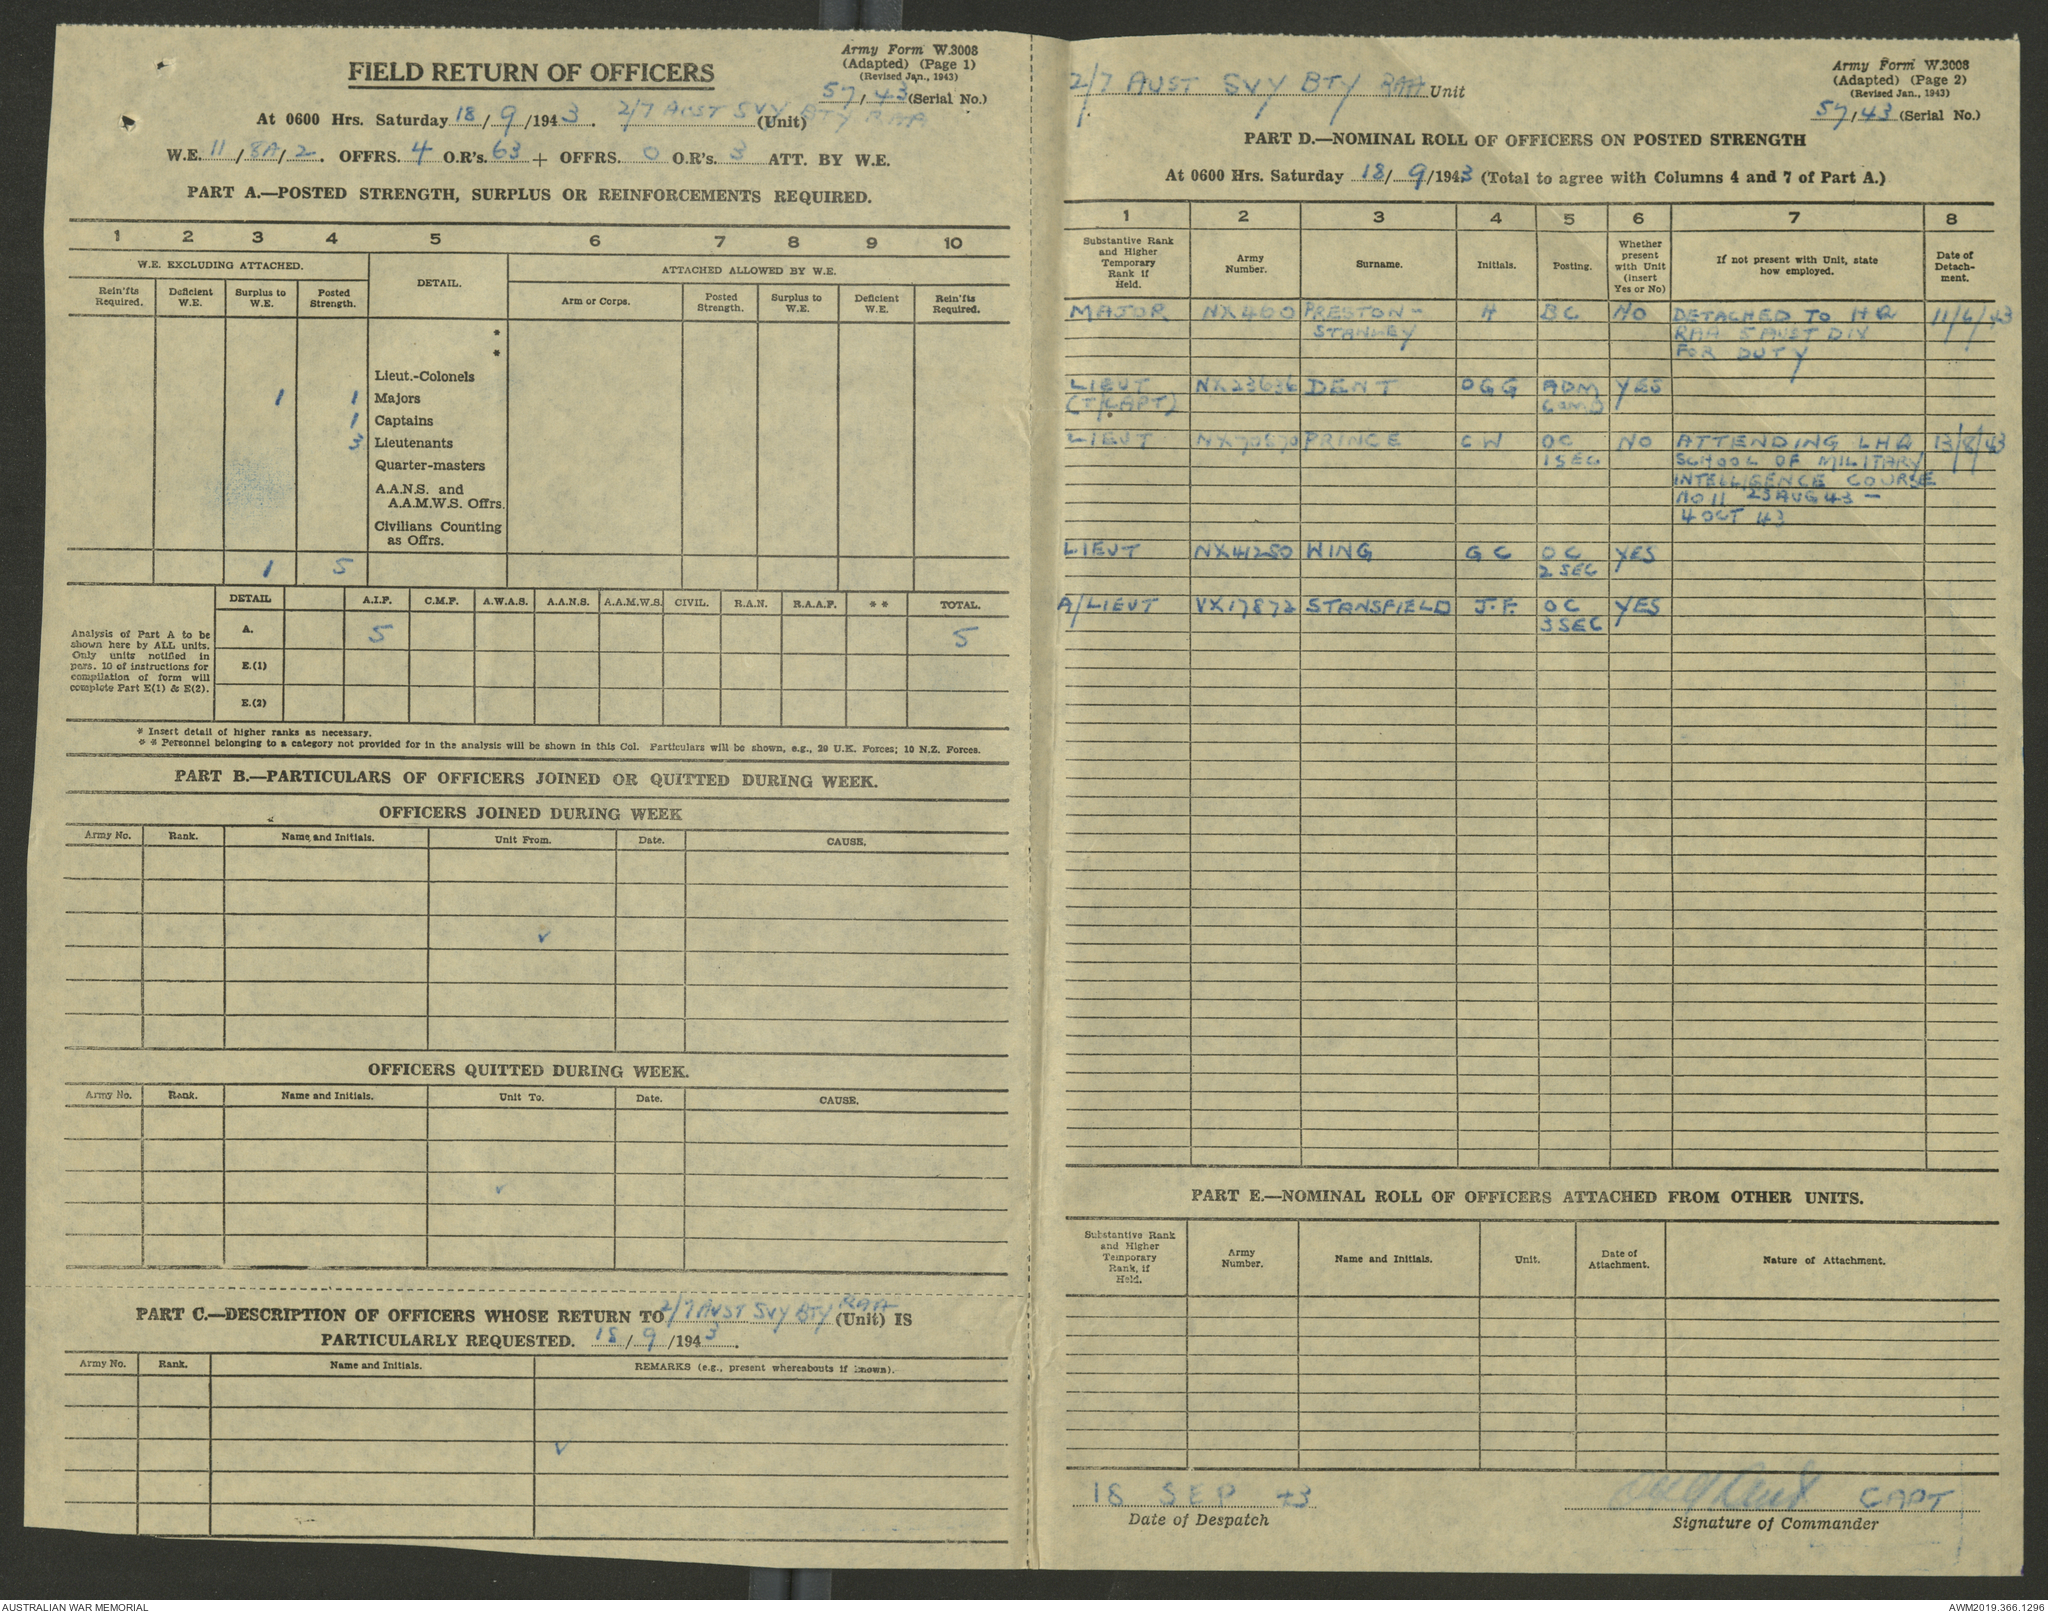 Army Form W.3008
(Adapted) (Page 1)
(Revised Jan., 1943)
FIELD RETURN OF OFFICERS
57/43 (Serial No.)
At 0600 Hrs. Saturday 18/9/1943. 2/7 AUST SVY BTY RAA (Unit)
W.E. 11/8A/2. OFFRS. 4 O.R's. 63 + OFFRS. 0 O.R's. 3 ATT. BY W.E.
PART A.—POSTED STRENGTH, SURPLUS OR REINFORCEMENTS REQUIRED.
1 2 3 4 5 6 7 8 9 10
W.E. EXCLUDING ATTACHED. DETAIL. ATTACHED ALLOWED BY W.E.
Rein'fts Required. Deficient W.E. Surplus to W.E. Posted Strength. Arm or Corps. Posted Strength. Surplus to W.E. Deficient W.E. Rein'fts Required.
*
*
Lieut.-Colonels
1 1 Majors
1 Captains
3 Lieutenants
Quarter-masters
A.A.N.S. and
A.A.M.W.S. Offrs.
Civilians Counting
as Offrs.
1 5
DETAIL A.I.F. C.M.F. A.W.A.S. A.A.N.S. A.A.M.W.S. CIVIL. R.A.N. R.A.A.F. * * TOTAL.
Analysis of Part A to be
shown here by ALL units.
Only units notified in
para. 10 of instructions for
compilation of form will
complete Part E(1) & E(2).
A. 5 5
E.(1)
E.(2)
* Insert detail of higher ranks as necessary.
* * Personnel belonging to a category not provided for in the analysis will be shown in this Col. Particulars will be shown, e.g., 29 U.K. Forces; 10 N.Z. Forces.
PART B.—PARTICULARS OF OFFICERS JOINED OR QUITTED DURING WEEK.
OFFICERS JOINED DURING WEEK
Army No. Rank. Name and Initials. Unit From. Date. CAUSE.
OFFICERS QUITTED DURING WEEK.
Army No. Rank. Name and Initials. Unit To. Date. CAUSE.
PART C.—DESCRIPTION OF OFFICERS WHOSE RETURN TO 2/7 AUST SVY BTY RAA (Unit) IS
PARTICULARLY REQUESTED. 18/9/1943.
Army No. Rank. Name and Initials. REMARKS (e.g., present whereabouts if known).
Army Form W.3008
(Adapted) (Page 2)
(Revised Jan., 1943)
2/7 AUST SVY BTY RAA Unit
57/43 (Serial No.)
PART D.—NOMINAL ROLL OF OFFICERS ON POSTED STRENGTH
At 0600 Hrs. Saturday 18/9/1943 (Total to agree with Columns 4 and 7 of Part A.)
1 2 3 4 5 6 7 8
Substantive Rank and Higher Temporary Rank if Held. Army Number. Surname. Initials. Posting. Whether present with Unit (insert Yes or No) If not present with Unit, state how employed. Date of Detachment.
MAJOR NX400 PRESTON- H BC NO DETACHED TO HQ 11/6/43
STANLEY RAA 5 AUST DIV
FOR DUTY
LIEUT NX23636 DENT OGG ADM YES
(T/CAPT) COMD
LIEUT NX70870 PRINCE CW OC NO ATTENDING LHQ 13/8/43
1 SEC SCHOOL OF MILITARY
INTELLIGENCE COURSE
NO 11 23 AUG 43 —
4 OCT 43
LIEUT NX41250 WING GC OC YES
2 SEC
A/LIEUT VX17872 STANSFIELD J.F. OC YES
3 SEC
PART E.—NOMINAL ROLL OF OFFICERS ATTACHED FROM OTHER UNITS.
Substantive Rank and Higher Temporary Rank, if Held. Army Number. Name and Initials. Unit. Date of Attachment. Nature of Attachment.
18 SEP 43 CAPT
Date of Despatch Signature of Commander
AUSTRALIAN WAR MEMORIAL AWM2019.366.1296